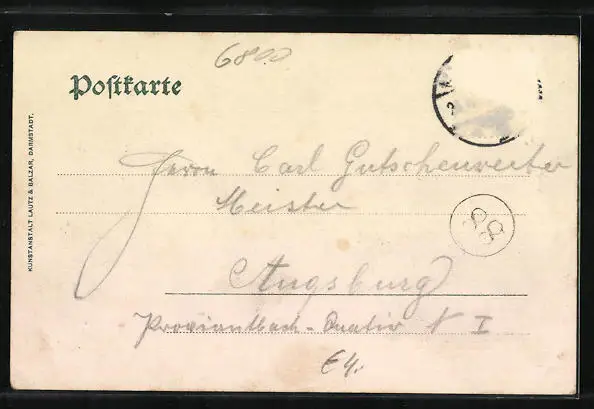 6800
Postkarte
KUNSTANSTALT LAUTZ & BALZAR, DARMSTADT.
Herrn Carl Gutschenreiter
Meister
88
Augsburg
Proviantbach - N I
€4.